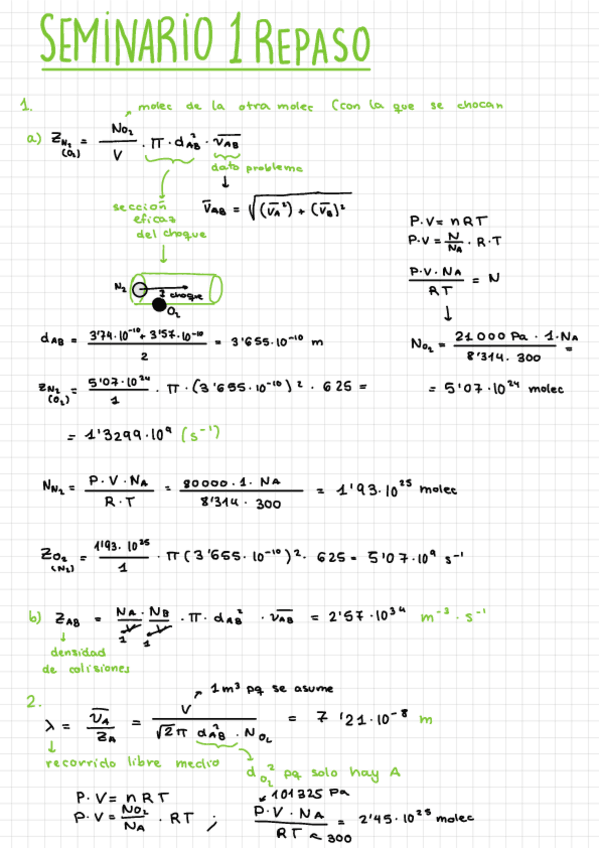 SEMINARIO 1 REPASO
1.
molec de la otra molec (con la que se chocan
a) Z_N₂ (O₂) = N_O₂ / V · π · d_AB² · v̅_AB
dato problema
sección eficaz del choque
v̅_AB = √((v̅_A²) + (v̅_B)²)
P·V = nRT
P·V = N/N_A · R·T
P·V·N_A / RT = N
N₂
choque
O₂
N_O₂ = 21000 Pa · 1·N_A / 8'314 · 300 =
= 5'07·10²⁴ molec
d_AB = 3'74·10⁻¹⁰ + 3'57·10⁻¹⁰ / 2 = 3'655·10⁻¹⁰ m
Z_N₂ (O₂) = 5'07·10²⁴ / 1 · π · (3'655·10⁻¹⁰)² · 625 =
= 1'3299·10⁹ (s⁻¹)
N_N₂ = P·V·N_A / R·T = 80000·1·N_A / 8'314 · 300 = 1'93·10²⁵ molec
Z_O₂ (N₂) = 1'93·10²⁵ / 1 · π (3'655·10⁻¹⁰)² · 625 = 5'07·10⁹ s⁻¹
b) Z_AB = N_A · N_B / V V · π · d_AB² · v̅_AB = 2'57·10³⁴ m⁻³·s⁻¹
1 1
densidad de colisiones
2.
1m³ pq se asume
λ = v̅_A / Z_A = V / √2 π d_AB² · N_O₂ = 7'21·10⁻⁸ m
recorrido libre medio
d_O₂² pq solo hay A
P·V = nRT
P·V = N_O₂ / N_A · RT ;
101325 Pa
P·V·N_A / RT = 2'45·10²⁵ molec
300